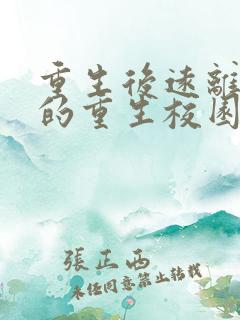 重生後遠離
的重生校園
張正西
未经同意禁止转载